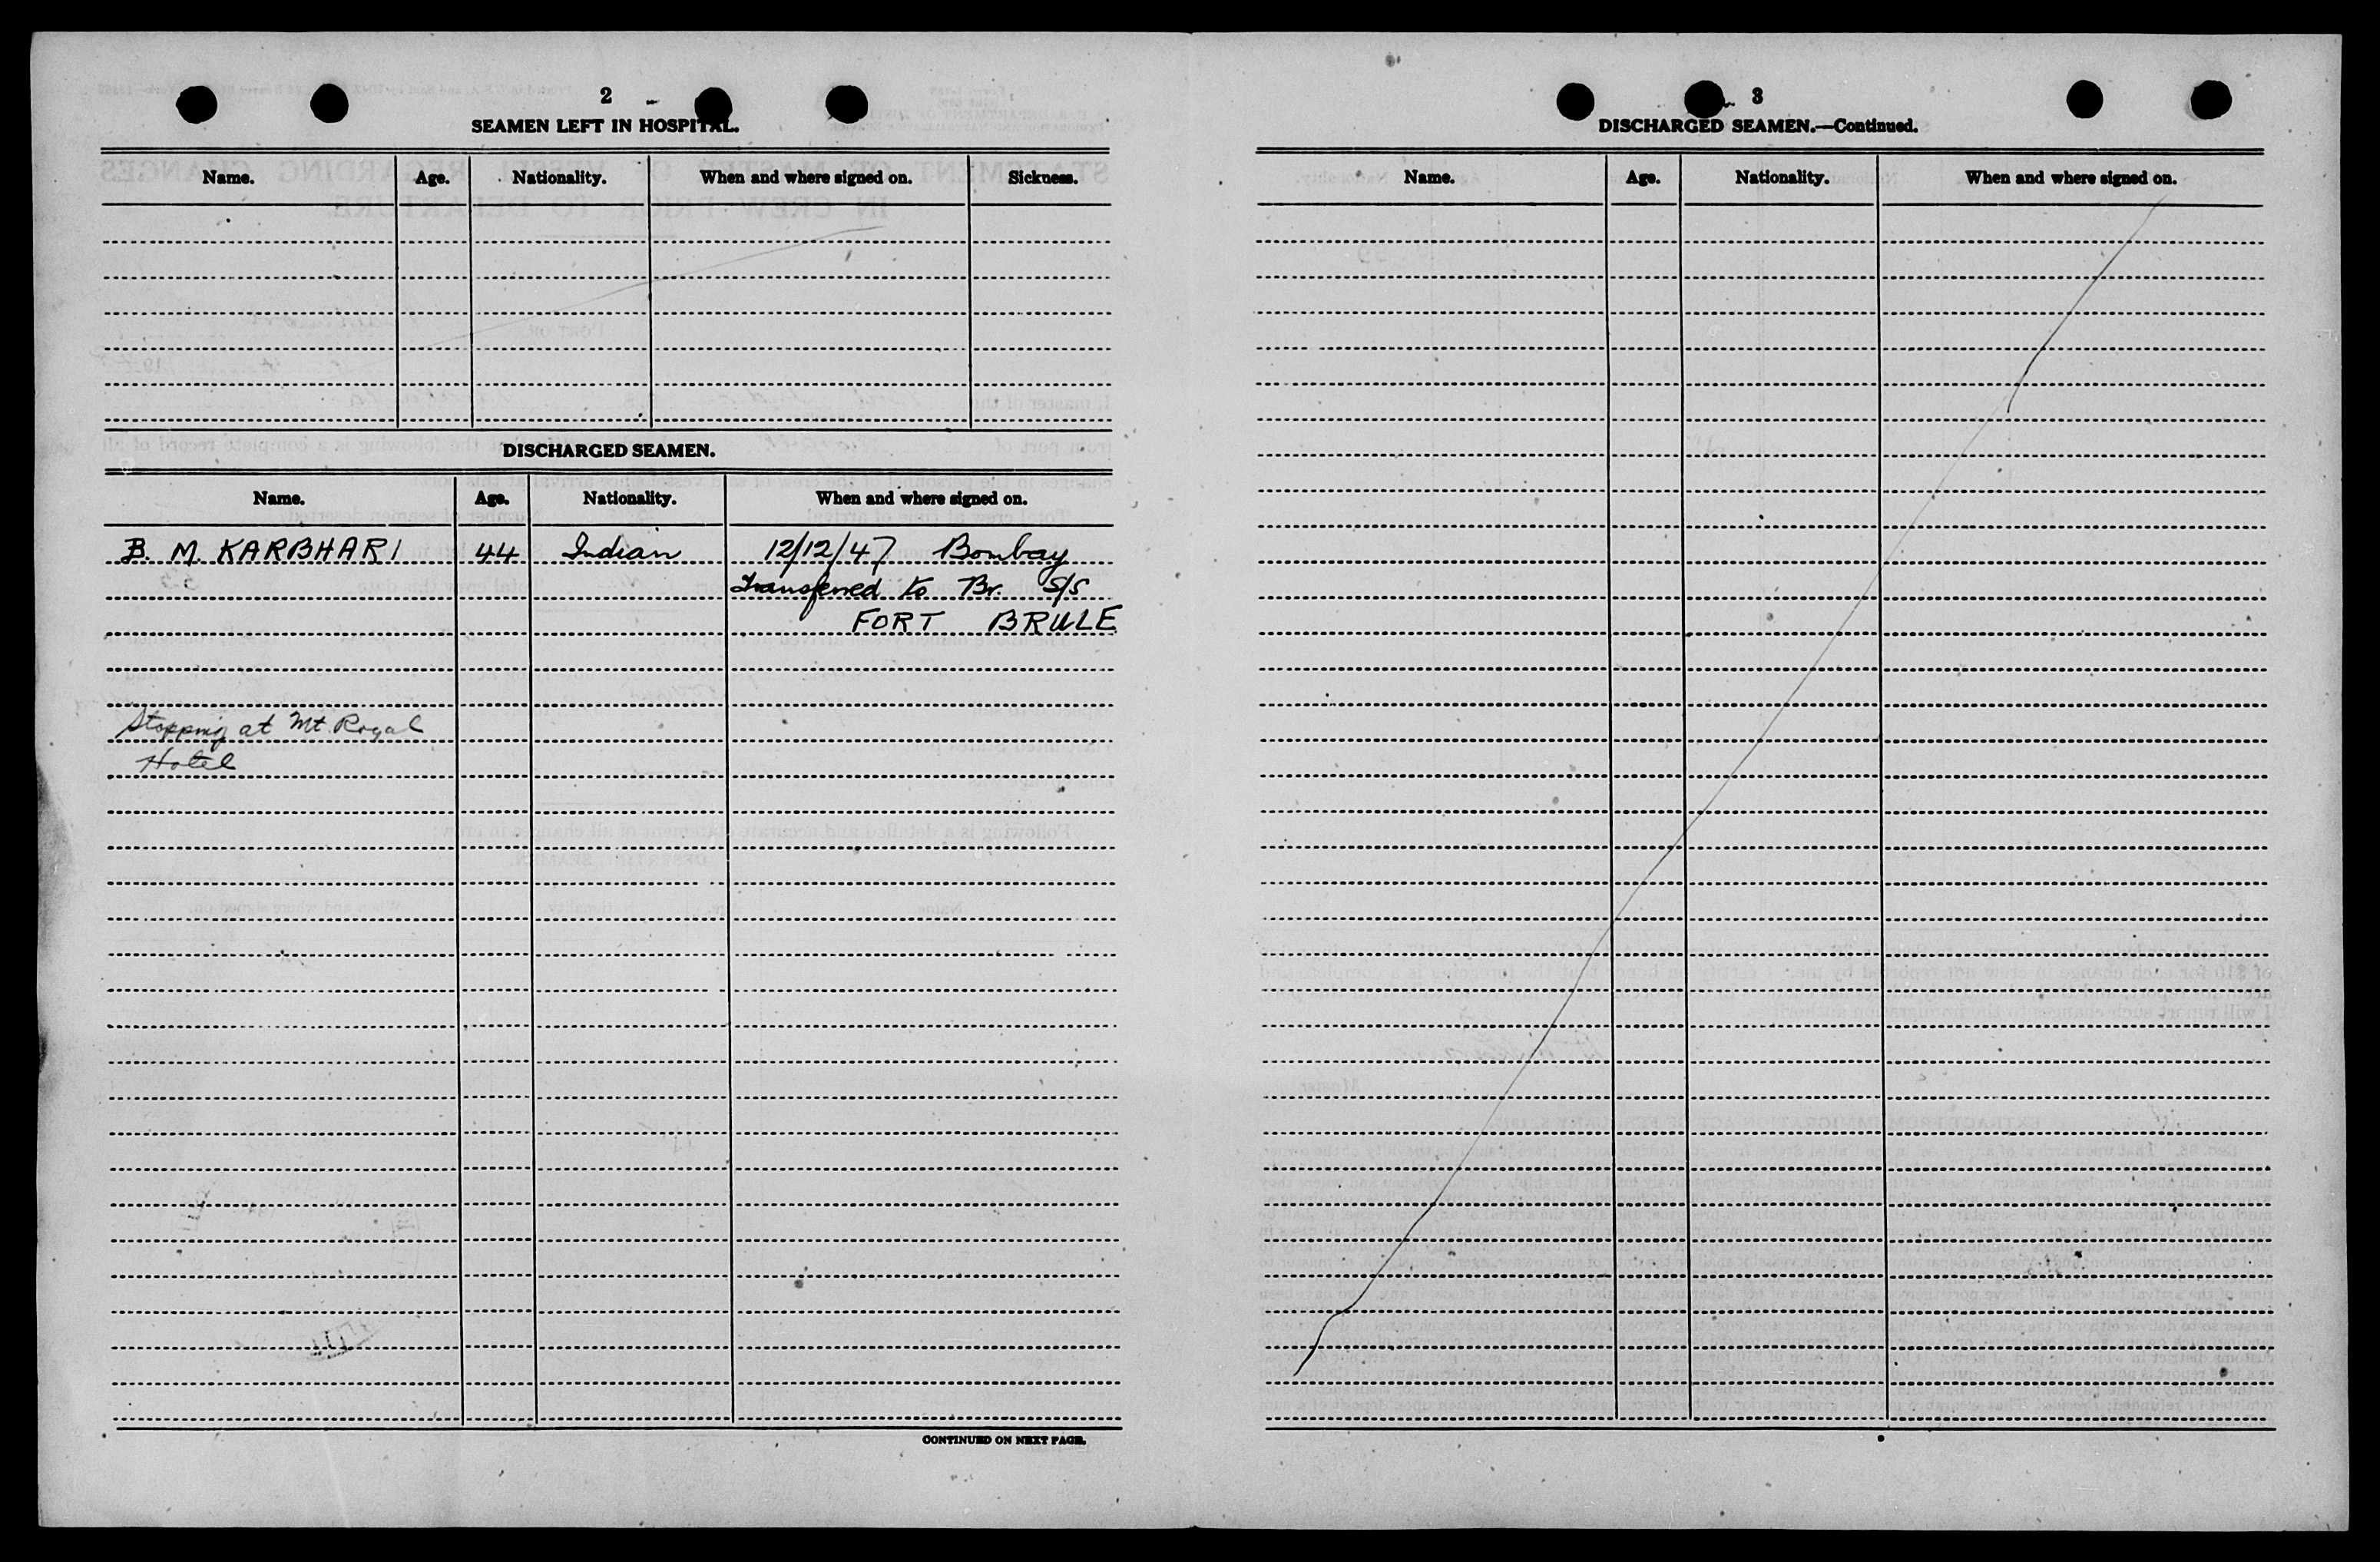 2
SEAMEN LEFT IN HOSPITAL.
Name. Age. Nationality. When and where signed on. Sickness.
DISCHARGED SEAMEN.
Name. Age. Nationality. When and where signed on.
B. M. KARBHARI 44 Indian 12/12/47 Bombay
Transferred to Br. S/S
FORT BRULE
Stopping at Mt. Royal
Hotel
CONTINUED ON NEXT PAGE.
3
DISCHARGED SEAMEN.—Continued.
Name. Age. Nationality. When and where signed on.